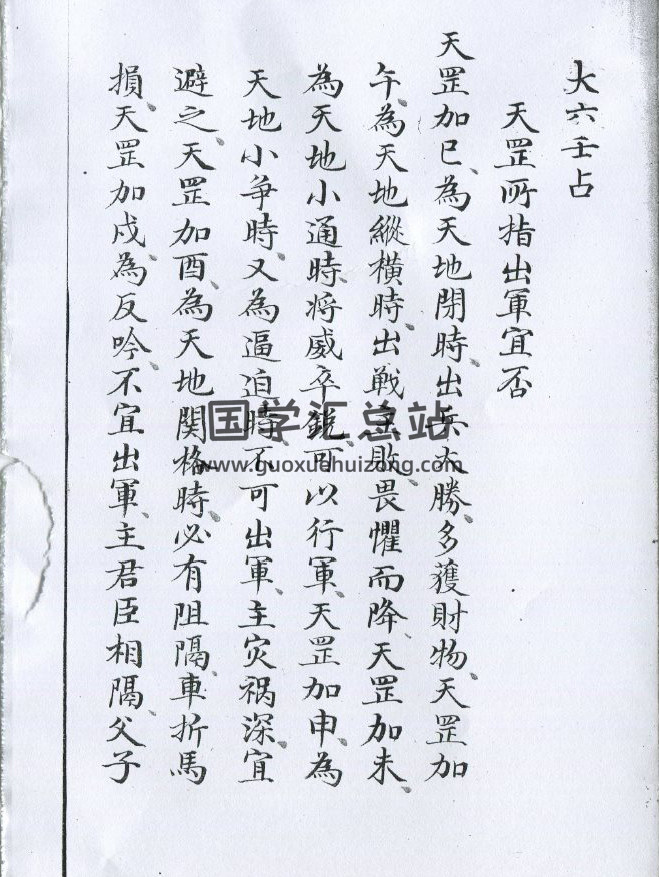 大六壬占
天罡所指出軍宜否
天罡加巳、為天地開時、出兵大勝、多獲財物、天罡加
午、為天地縱横時、出戦主敗、畏懼而降、天罡加未、
為天地小通時、将威卒鋭、可以行軍、天罡加申、為
天地小争時、又為逼迫時、不可出軍、主灾祸深、宜
避之、天罡加酉、為天地関格時、必有阻隔、車折馬
損、天罡加戌、為反吟、不宜出軍、主君臣相隔、父子
国学汇总站
www.guoxuehuizong.com